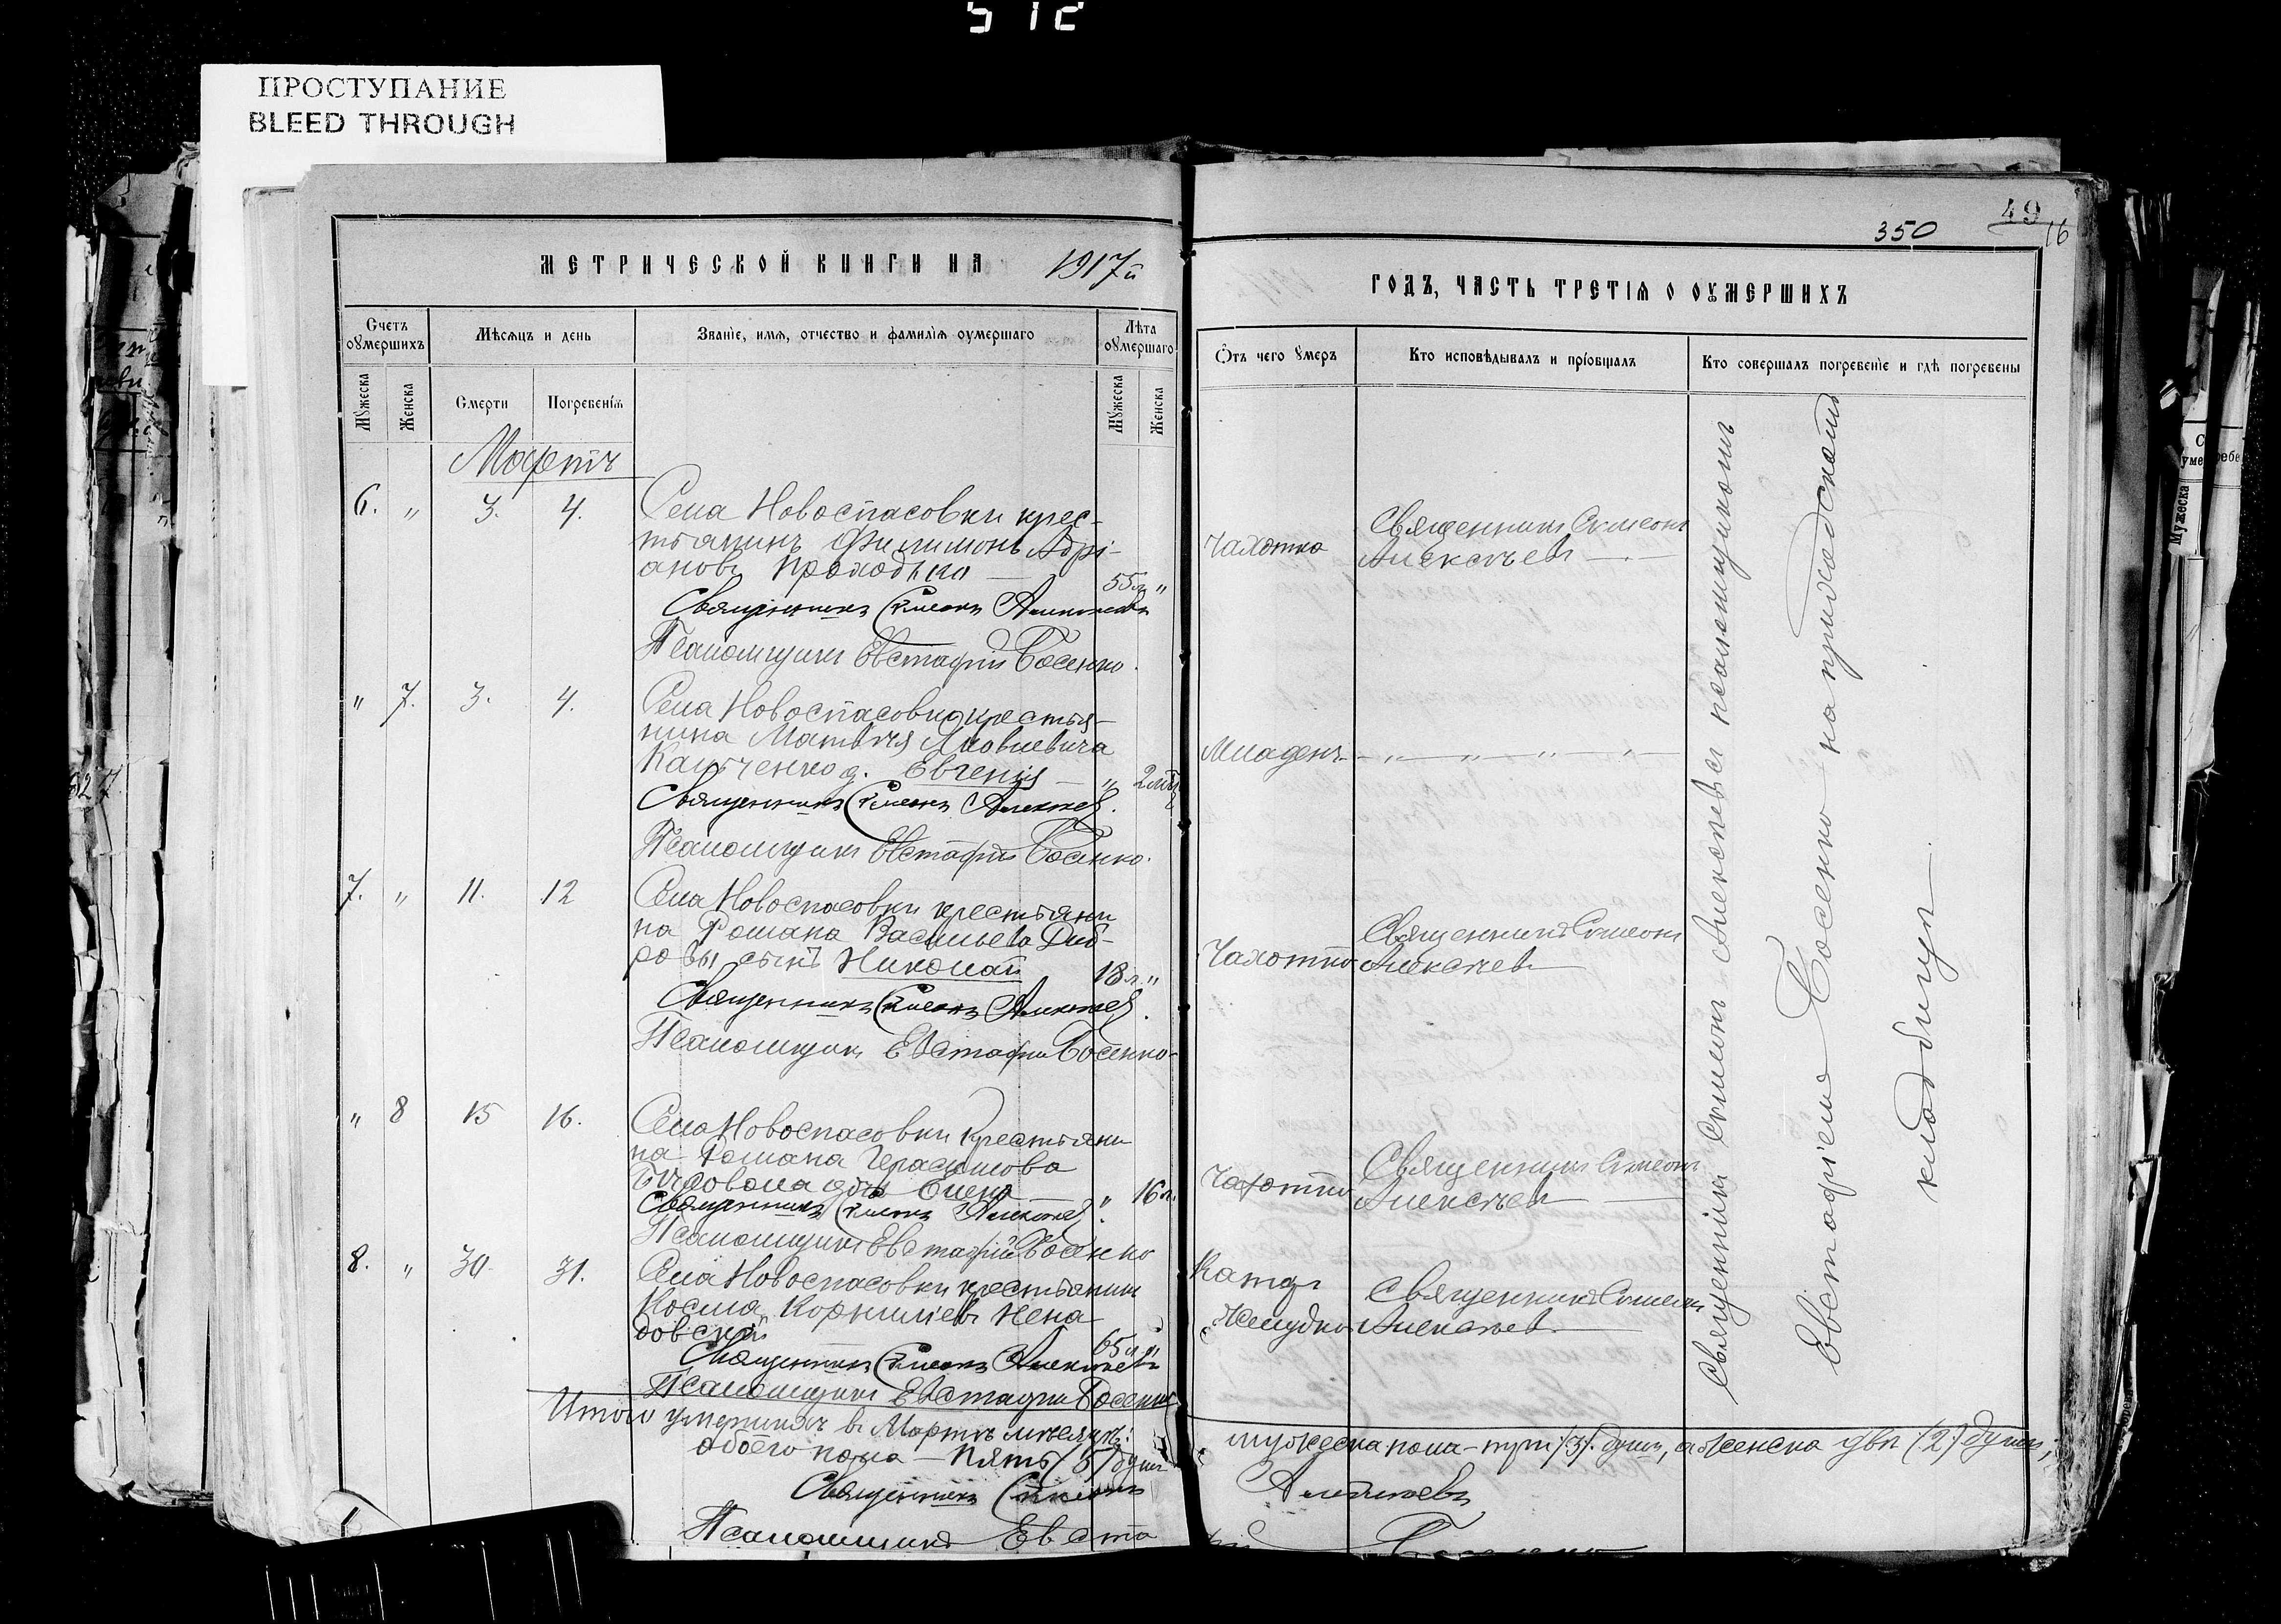 512
ПРОСТУПАНИЕ
BLEED THROUGH
49
350
16
МЕТРИЧЕСКОЙ КНИГИ НА 1917й
ГОДЪ, ЧАСТЬ ТРЕТІЯ О ОУМЕРШИХЪ
Счетъ оумершихъ
Мѣсяцъ и день
Званіе, имя, отчество и фамилія оумершаго
Лѣта оумершаго
Отъ чего умеръ
Кто исповѣдывалъ и пріобщалъ
Кто совершалъ погребеніе и гдѣ погребены
Мужеска
Женска
Смерти
Погребенія
Мужеска
Женска
Мартъ
6. " 3. 4. Села Новоспасовки крес-
тьянинъ Филимонъ Адрі-
ановъ Проходько — 55 л. "
Священникъ Симеонъ Алексѣевъ
Псаломщикъ Евстафій Босенко.
Чахотка
Священникъ Симеонъ
Алексѣевъ —
" 7. 3. 4. Села Новоспасовки крестья-
нина Матвѣя Яковлевича
д. Евгенія — " 2 мѣс.
Священникъ Симеонъ Алексѣев.
Псаломщикъ Евстафій Босенко.
Младенч.
7. " 11. 12 Села Новоспасовки крестьяни
на Романа Васильева Диб-
ровы сынъ Николай 18 л. "
Священникъ Симеонъ Алексѣев.
Псаломщикъ Евстафій Босенко.
Чахотки
Священникъ Симеонъ
Алексѣевъ
" 8 15 16. Села Новоспасовки крестьяни
на Романа Герасимова
дочь Елена — " 16 л.
Священникъ Симеонъ Алексѣев.
Псаломщикъ Евстафій Босенко
Чахотки
Священникъ Симеонъ
Алексѣевъ
8. " 30. 31. Села Новоспасовки крестьянинъ
Косма Корниліевъ Нена
довскій 65 л. "
Священникъ Симеонъ Алексѣевъ
Псаломщикъ Евстафій Босенко
Катар
желудка
Священникъ Симеонъ
Алексѣевъ
Священникъ Симеонъ Алексѣевъ с псаломщикомъ
Евстафіемъ Босенко на приходскомъ
кладбищѣ
Итого умершихъ въ Мартѣ мѣсяцѣ:
обоего пола — пять (5) душъ
мужеска пола — три (3) души, а женска двѣ (2) души,
Священникъ Симеонъ Алексѣевъ
Псаломщикъ Евстафій Босенко